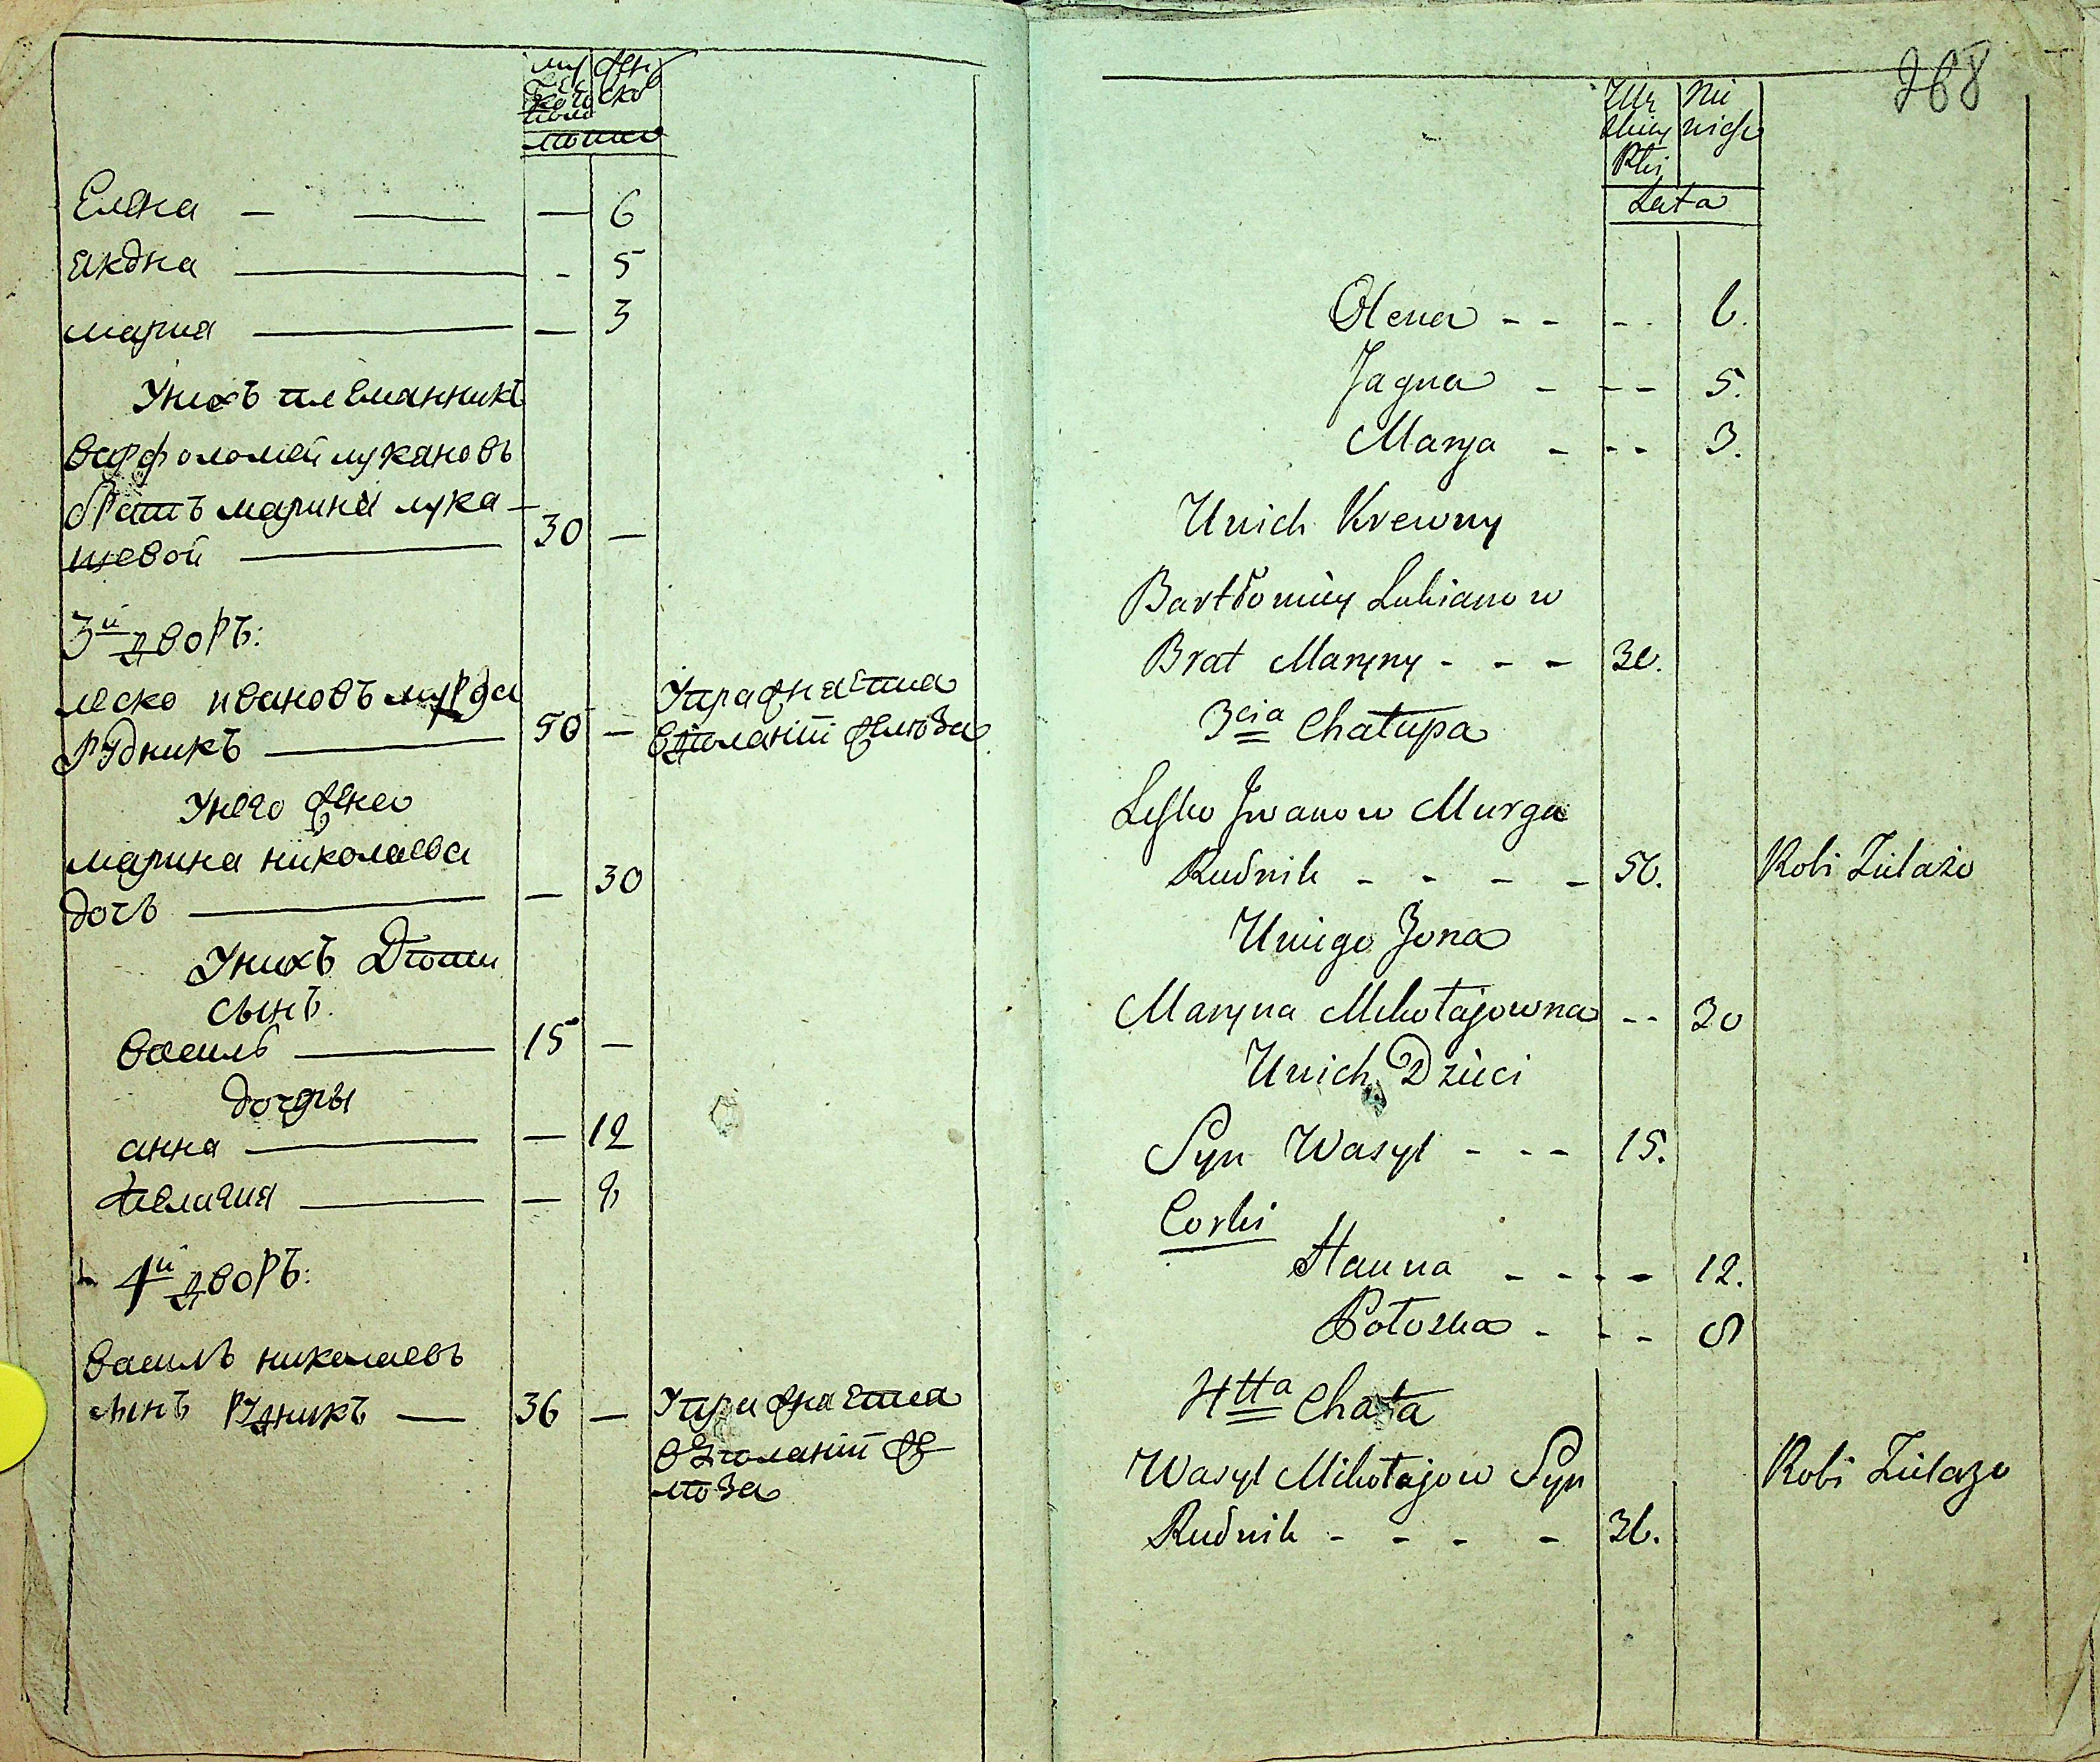 муж
ска
жен
ска
лета
Елена — — — 6
Якдна — — 5
мария — — 3
Унихъ племянникъ
варфоломей лукяновъ
братъ марини лука-
невой — 30 —
3й дворъ:
леско ивановъ мурga
рудникъ — 50 —
Упражнается
Унего жена
марина николаева
дочь — — 30
Унихъ Дѣти
сынъ.
василь — 15 —
дочеры
анна — — 12
пелагия — — 9
4й дворъ:
василь николаевъ
сынъ рудникъ — 36 —
Упражнается
268
Lata
Olena - - - - 6.
Jagna - - - 5.
Marya - - - 3.
Unich Krewny
Bartłomiey Lukianow
Brat Maryny - - - 30.
3cia Chałupa
Lesko Jwanow Murga
Rudnik - - - - 50.
Robi Żelazo
Uniego Zona
Maryna Mikołajowna - - 30
Unich Dzieci
Syn Wasyl - - - 15.
Corki
Hanna - - - - 12.
Połoska - - - 9
4tta Chata
Wasyl Mikołajow Syn
Robi Żelazo
Rudnik - - - - 36.